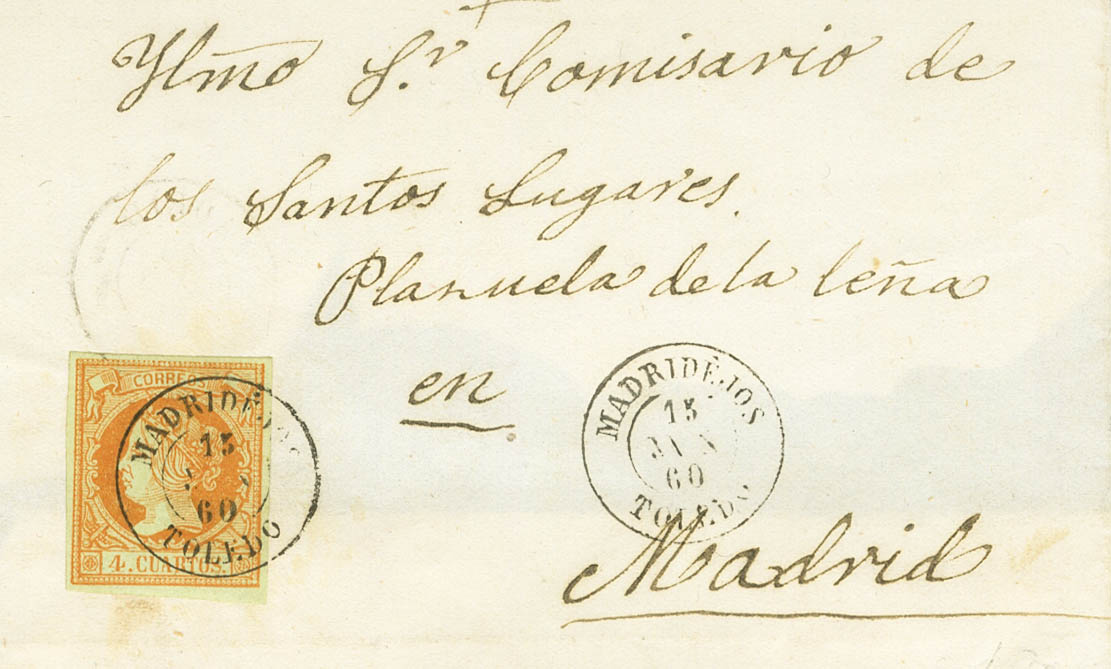 Ylmo Sr. Comisario de
los Santos Lugares.
Planuela de la leña
en
Madrid
CORREOS
4. CUARTOS.
MADRIDÉJOS
15
60
TOLEDO
MADRIDÉJOS
15
60
TOLEDO